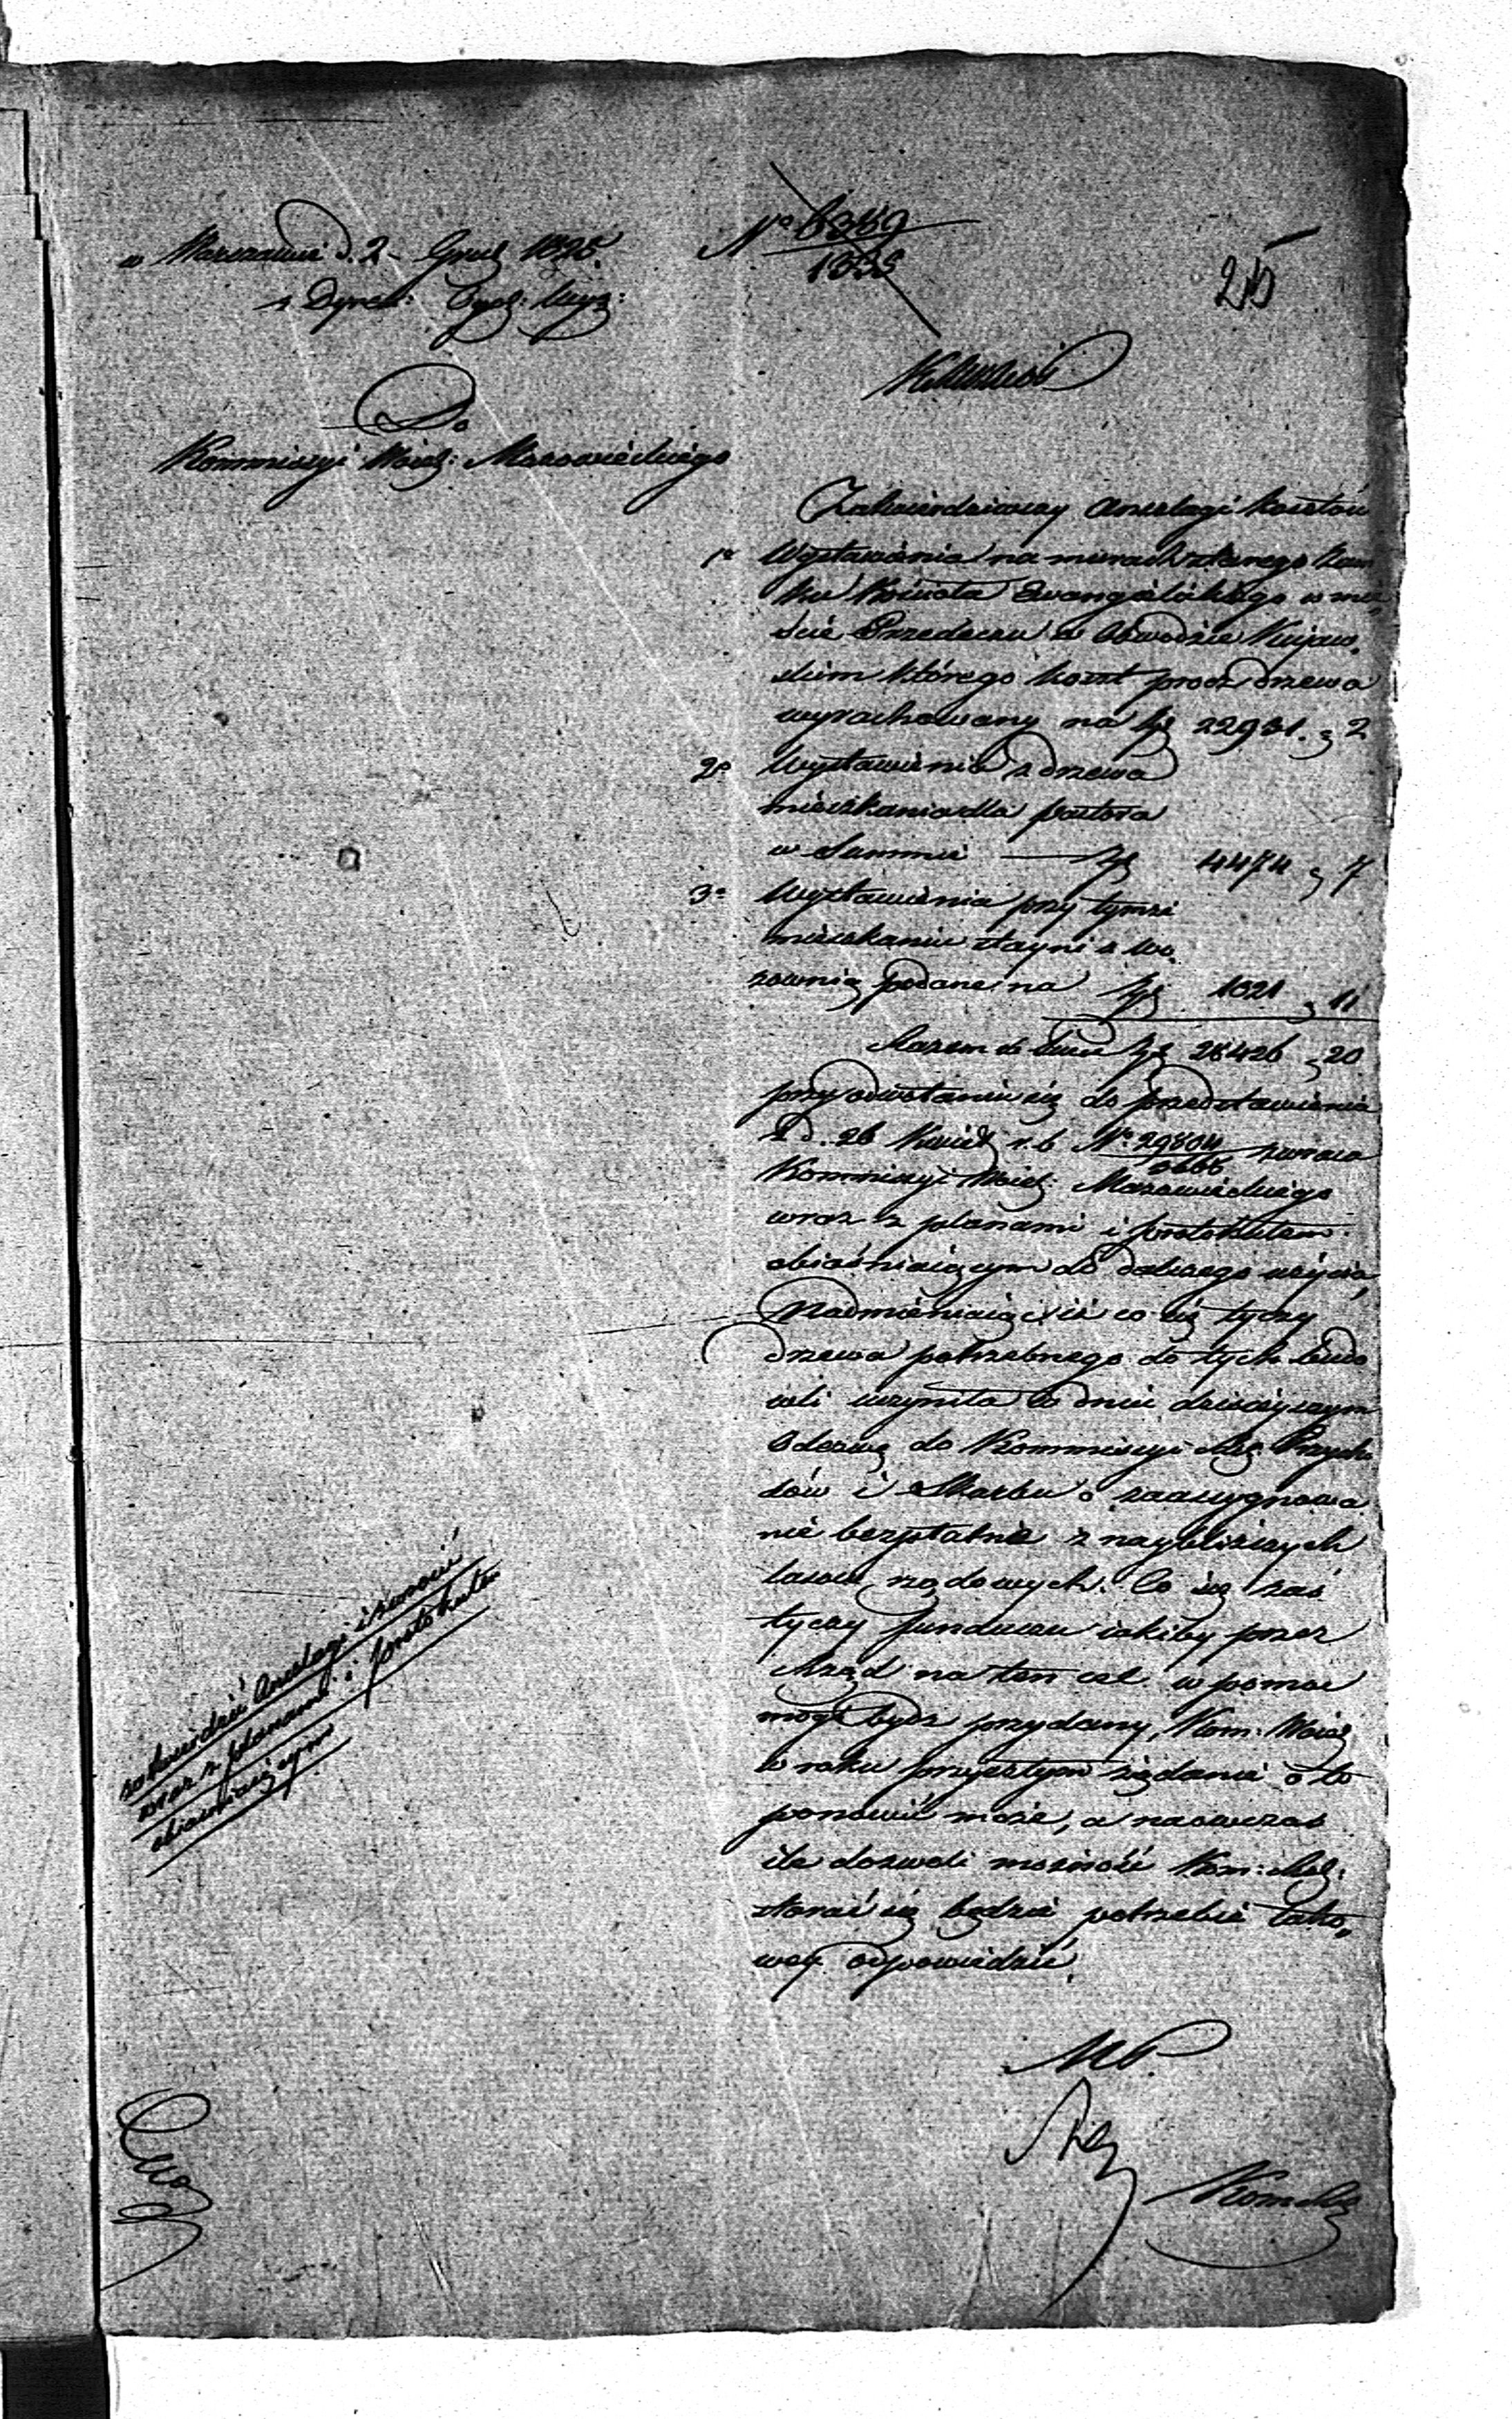 w Warszawie d. 2 Grud 1825
No 6389
1825
25
Do
Kommissyi Woiew: Mazowieckiego
Zatwierdziwszy Anszlagi kosztów
1o Wystawienia na murach starego Zam
ku Kościoła Ewangielickiego w mie„
ście Przedeczu w Obwodzie Kujaw„
skim którego koszt procz drzewa
wyrachowany na Zł 22931. g 2
2o Wystawienia z drzewa
mieszkania dla pastora
w Summie — Zł 4474 g 7
3o Wystawienia przy tymże
mieszkaniu stayni z wo„
zownią podane na Zł 1021 g 11
Razem Zł 28426 g 20
przy odwołaniu się do przedstawienia
z d. 26 Kwiet r. b No 29804 zwraca
Kommissyi Woiew: Mazowieckiego
wraz z planami i protokułem
obiaśniaiącym do dalszego użycia,
Nadmieniaiąc iż co się tyczy
drzewa potrzebnego do tych budo
wli uczyniła w dniu dzisieyszym
Odezwę do Kommissyi Rzą Przycho
dów i Skarbu o zaasygnowa
nie bezpłatnie z naybliższych
lasów rządowych. Co się zaś
tyczy funduszu iakiby przez
Rząd na ten cel w pomoc
mógł bydz przydany, Kom: Woiew
w roku przyszłym żądanie o to
ponowić może, a naówczas
ile dozwoli możność Kom: Rzą:
starać się będzie potrzebie tako„
wey odpowiedzieć.
zatwierdzić Anszlagi i zwrócić
wraz z planami i protokułem
obiaśniaiącym
MP.
Kom Rz